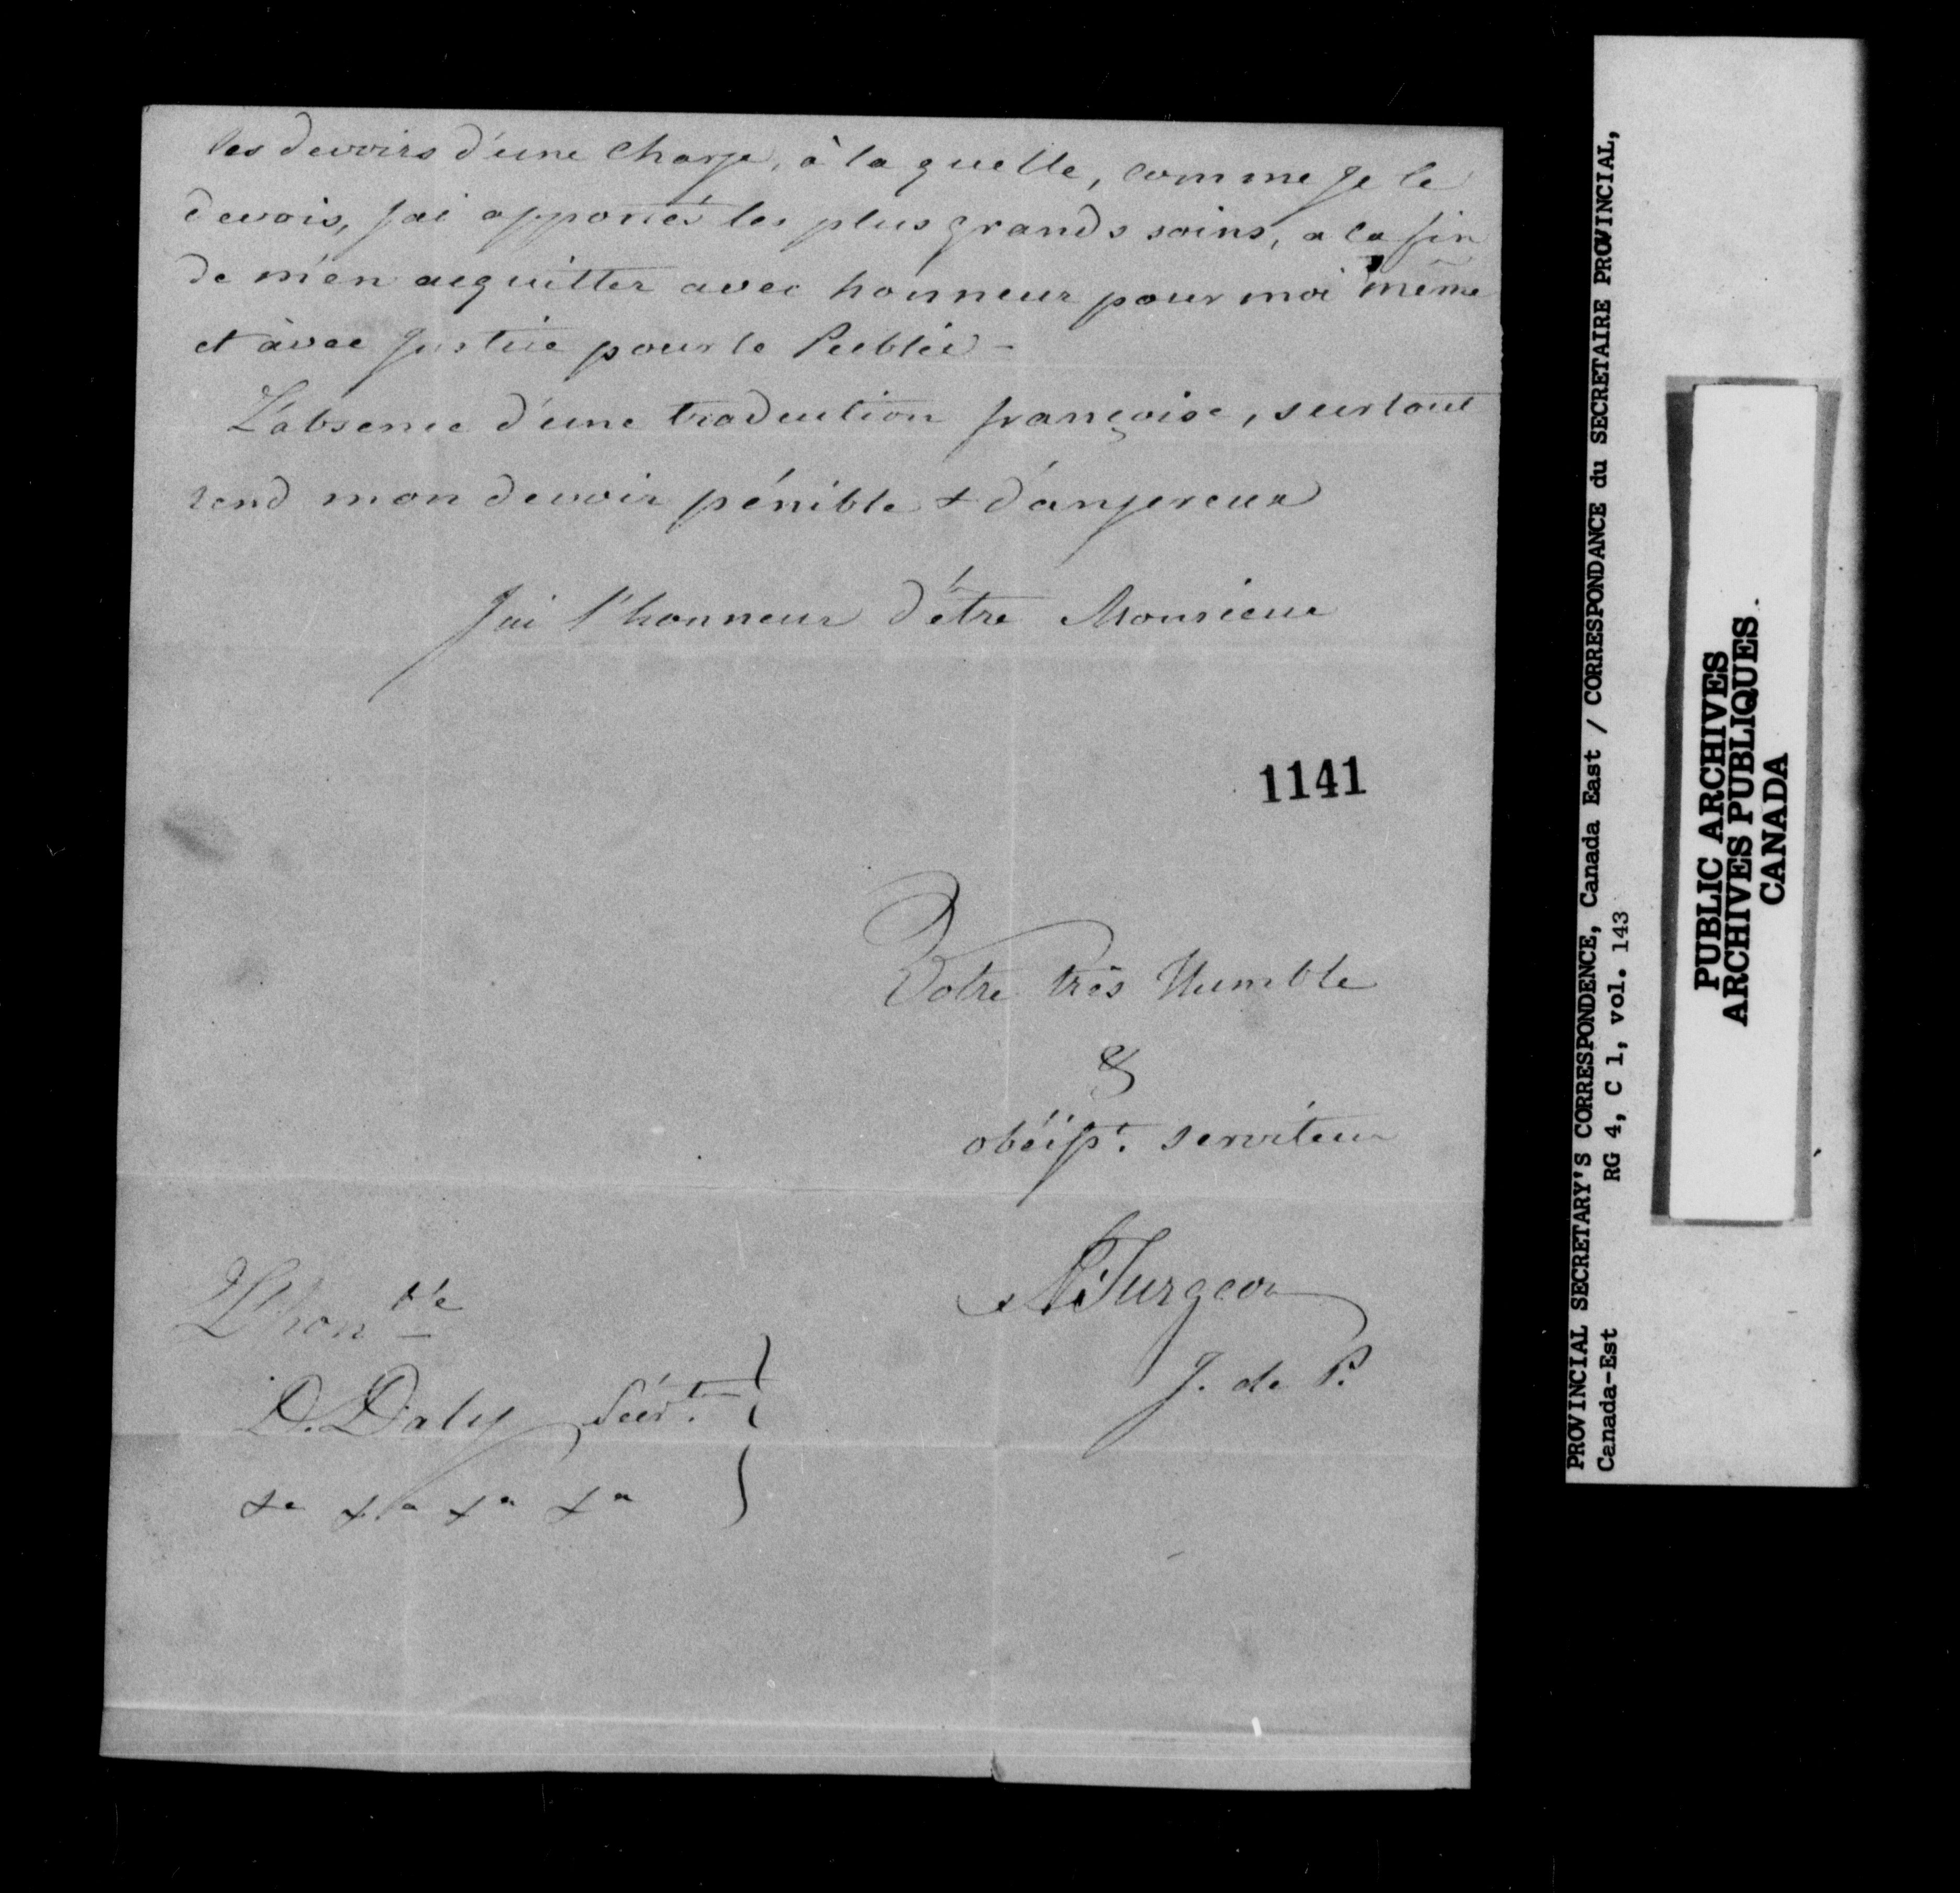 les devoirs d'une Charge, à la quelle, comme Je le
devois, J'ai apportés les plus grands soins, a la fin
de m'en acquitter avec honneur pour moi même
et àvec Justice pour le Public -
L'absence d'une traduction françoise, surtout
rend mon devoir pénible & dángereux
J'ai l'honneur d'être Monsieur
1141
Votre très Humble
&
obéisst. serviteur
Turgeon
J. de P.
L'honble
D. Daly Sécrt.
&a &a &a &a
PROVINCIAL SECRETARY'S CORRESPONDENCE, Canada East / CORRESPONDANCE du SECRETAIRE PROVINCIAL,
Canada-Est RG 4, C 1, vol. 143
PUBLIC ARCHIVES
ARCHIVES PUBLIQUES
CANADA